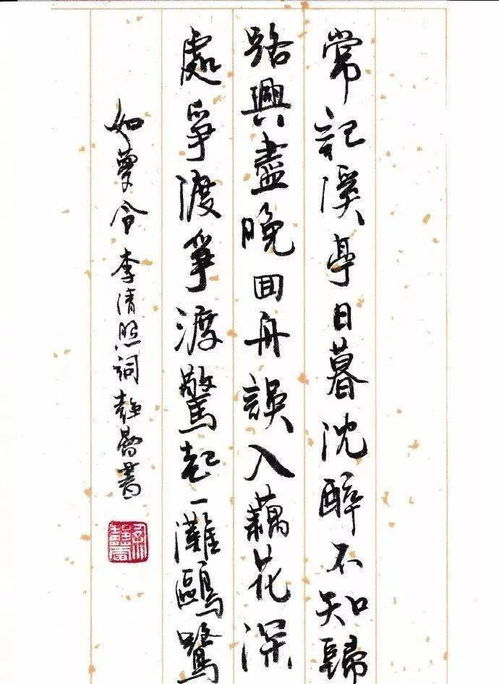 常記溪亭日暮沈醉不知歸
路興盡晚回舟誤入藕花深
處爭渡爭渡驚起一灘鷗鷺
如夢令李清照詞書